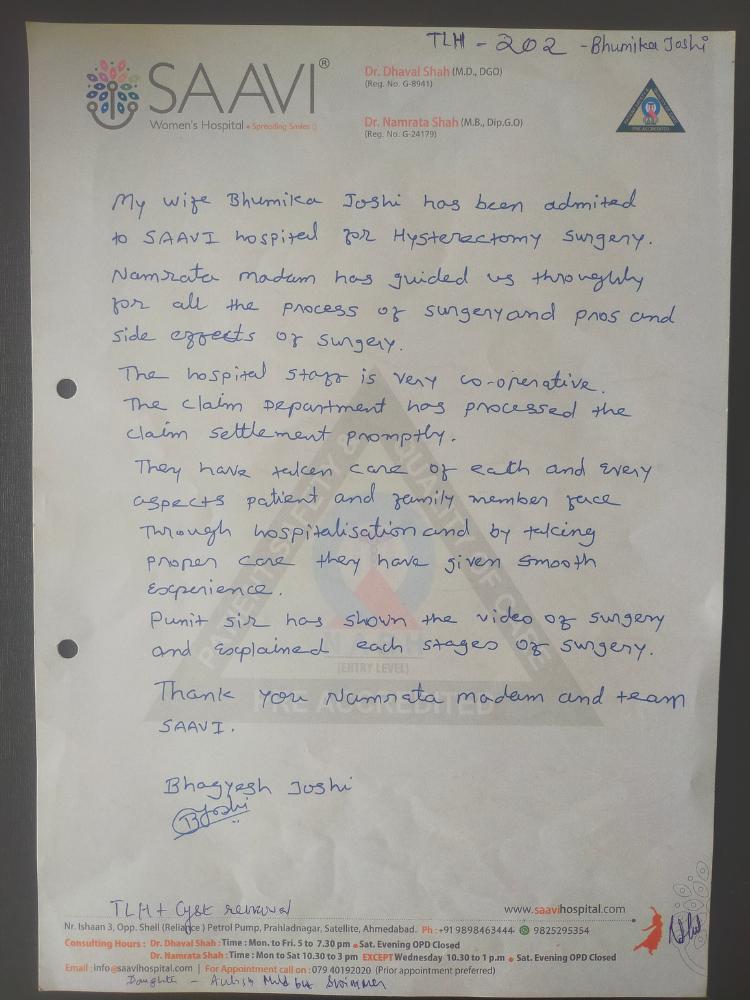 TLH - 202 - Bhumika Joshi
SAAVI®
Women's Hospital • Spreading Smiles :)
Dr. Dhaval Shah (M.D., DGO)
(Reg. No. G-8941)
Dr. Namrata Shah (M.B., Dip.G.O)
(Reg. No. G-24179)
PRE ACCREDITED
My wife Bhumika Joshi has been admited
to SAAVI hospital for Hysterectomy surgery.
Namrata madam has guided us throughly
for all the process of surgery and pros and
side effects of surgery.
The hospital staff is very co-operative.
The claim Department has processed the
claim settlement promptly.
They have taken care of each and every
aspects patient and family member face
through hospitalisation and by taking
proper care they have given smooth
experience.
Punit sir has shown the video of surgery
and explained each stages of surgery.
Thank you Namrata madam and team
SAAVI.
PATIENT SAFETY & QUALITY OF CARE
NABH
(ENTRY LEVEL)
PRE ACCREDITED
Bhagyesh Joshi
BJoshi
TLH + Cyst removal
www.saavihospital.com
Nr. Ishaan 3, Opp. Shell (Reliance) Petrol Pump, Prahladnagar, Satellite, Ahmedabad. Ph : +91 9898463444 9825295354
Consulting Hours : Dr. Dhaval Shah : Time : Mon. to Fri. 5 to 7.30 pm • Sat. Evening OPD Closed
Dr. Namrata Shah : Time : Mon to Sat 10.30 to 3 pm EXCEPT Wednesday 10.30 to 1 p.m • Sat. Evening OPD Closed
Email : info@saavihospital.com | For Appointment call on : 079 40192020 (Prior appointment preferred)
Daughter - Swimmer